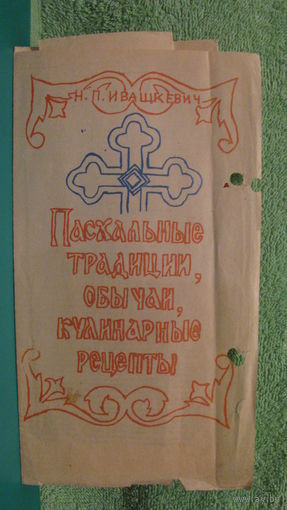 Н. П. ИВАШКЕВИЧ
ПАСХАЛЬНЫЕ
ТРАДИЦИИ,
ОБЫЧАИ,
КУЛИНАРНЫЕ
РЕЦЕПТЫ